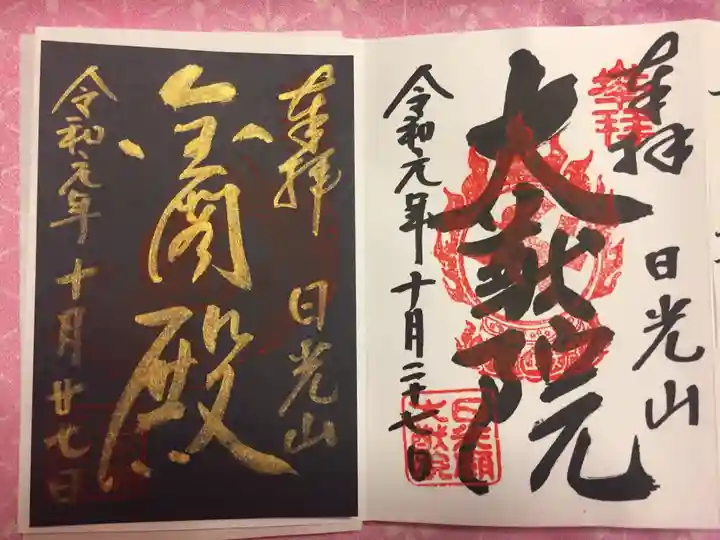 奉拝 日光山
大猷院
令和元年十月二十七日
奉拝
奉拝 日光山
金閣殿
令和元年十月廿七日